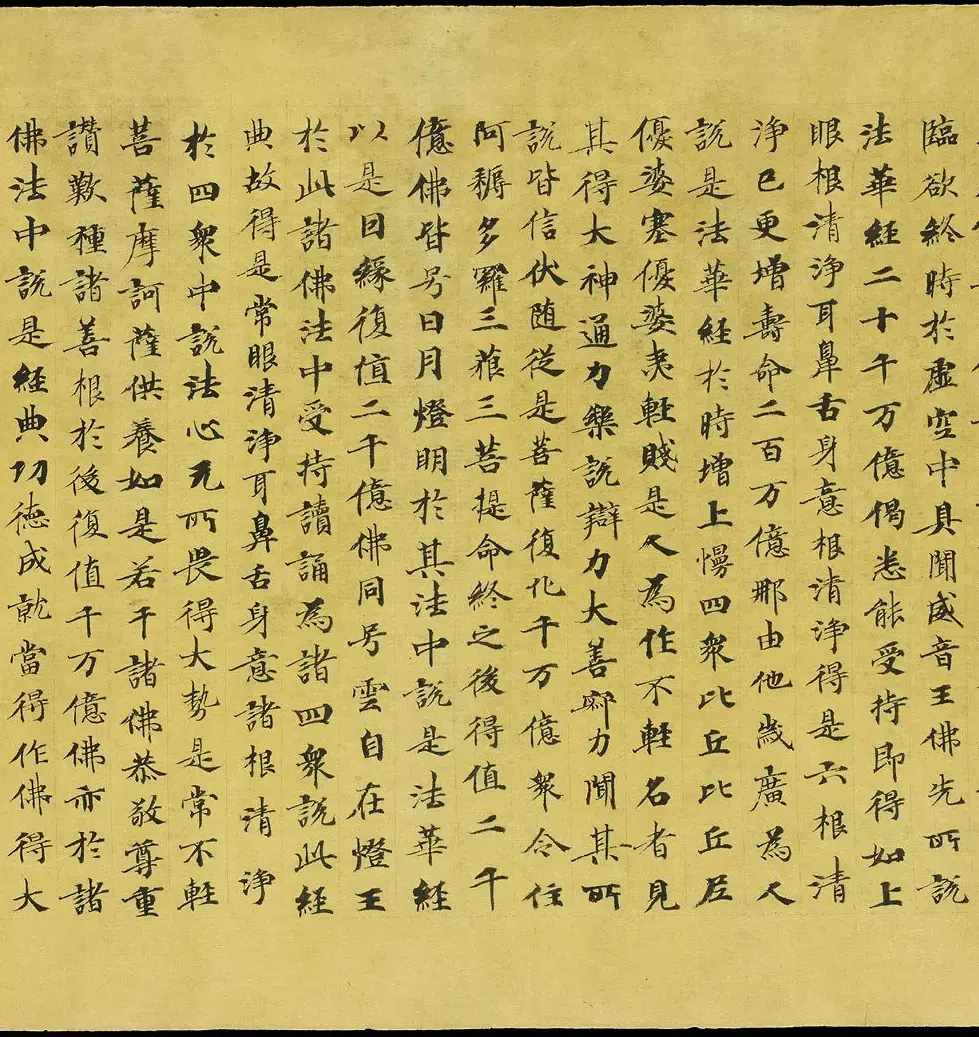 臨欲終時於虛空中具聞威音王佛先所說
法華経二十千万億偈悉能受持即得如上
眼根清淨耳鼻舌身意根清淨得是六根清
淨已更增壽命二百万億那由他歲廣為人
說是法華経於時增上慢四衆比丘比丘尼
優婆塞優婆夷軽賤是人為作不軽名者見
其得大神通力樂說辯力大善寂力聞其所
說皆信伏随從是菩薩復化千万億衆令住
阿耨多羅三藐三菩提命終之後得值二千
億佛皆号日月燈明於其法中說是法華経
以是因緣復值二千億佛同号雲自在燈王
於此諸佛法中受持讀誦為諸四衆說此経
典故得是常眼清淨耳鼻舌身意諸根清淨
於四衆中說法心无所畏得大勢是常不軽
菩薩摩訶薩供養如是若干諸佛恭敬尊重
讃歎種諸善根於後復值千万億佛亦於諸
佛法中說是経典功徳成就當得作佛得大